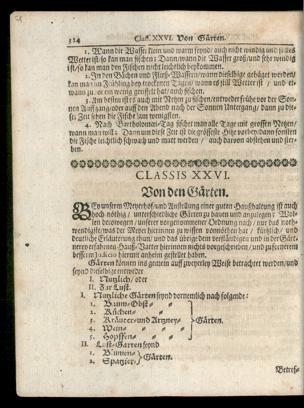 324 Class. XXVI. Von Gärten.
1. Wann die Wasser klein und warm seynd/ auch nicht windig und stilles
Wetter ist/ so kan man fischen; Dann/ wann die Wasser groß/ und sehr windig
ist/ so kan man den Fischen nicht leichtlich beykommen.
2. In den Bächen und Fließ-Wassern/ wann dieselbige gehäget werden/
kan man im Frühling bey trockenen Tagen/ wann es still Wetter ist/ und et-
wann zu
3. Am besten ist es auch mit Netzen zu fischen/ entweder frühe vor der Son-
nen Auffgang/ oder auff den Abend nach der Sonnen Untergang/ dann zu die-
ser Zeit sehen die Fische am wenigsten.
4. Nach Bartholomæi-Tag fischet man alle Tage mit grossen Netzen/
wann man will: Dann um diese Zeit ist die grösseste Hitze vorbey/ dann sonsten
die Fische leichtlich schwach und matt werden/ auch darvon abstehen und ster-
ben.
CLASSIS XXVI.
Von den Gärten.
BEy unserm Meyerhof/ und Anstellung einer guten Haußhaltung ist auch
hoch nöthig/ unterschiedliche Gärten zu bauen und anzulegen: Wol-
len derowegen/ unserer vorgenommener Ordnung nach/ nur das noth-
wendigste/ was der Meyer hierinnen zu wissen vonnöthen hat/ kürtzlich/ und
deutliche Erläuterung thun/ und das übrige dem verständigen und in der Gärt-
nerey erfahrnen Hauß-Vatter hierinnen nichts vorgeschrieben/ und zu fernerem
besserm hiermit anheim gestellet haben.
Gärten können ins gemein auff zweyerley Weise betrachtet werden/ und
seynd dieselbige entweder
I. Nutzlich/ oder
II. Zur Lust.
I. Nutzliche Gärten seynd vornemlich nach folgende:
1. Baum-Obst
2. Küchen
3. Kräuter- und Artzney- Gärten.
4. Wein
5. Hopffen
II. Lust-Gärten seynd
1. Blumen
2. Spatzier Gärten.